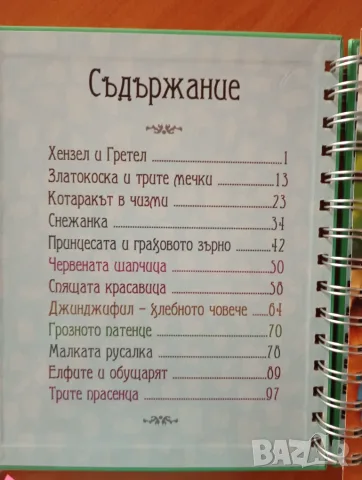 Съдържание
Хензел и Гретел 1
Златокоска и трите мечки 13
Котаракът в чизми 23
Снежанка 34
Принцесата и граховото зърно 42
Червената шапчица 50
Спящата красавица 58
Джинджифил – хлебното човече 64
Грозното патенце 70
Малката русалка 78
Елфите и обущарят 89
Трите прасенца 97
BAZAR